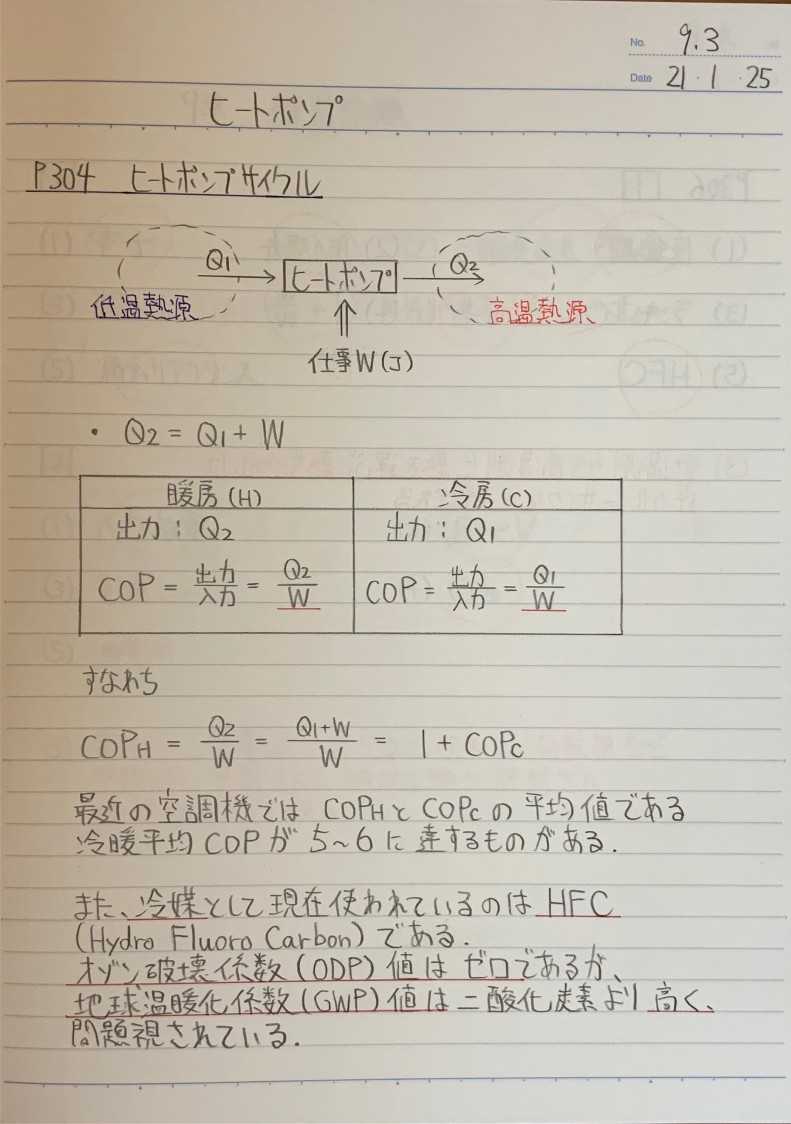 No. 9.3
Date 21・1・25
ヒートポンプ
P304 ヒートポンプサイクル
Q1 ヒートポンプ Q2
低温熱源 高温熱源
仕事W(J)
・ Q2 = Q1 + W
暖房(H) 冷房(C)
出力：Q2 出力：Q1
COP = 出力/入力 = Q2/W COP = 出力/入力 = Q1/W
すなわち
COPH = Q2/W = Q1+W/W = 1 + COPC
最近の空調機では COPHとCOPCの平均値である
冷暖平均COPが5~6に達するものがある.
また、冷媒として現在使われているのはHFC
(Hydro Fluoro Carbon)である.
オゾン破壊係数(ODP)値はゼロであるが、
地球温暖化係数(GWP)値は二酸化炭素より高く、
問題視されている.